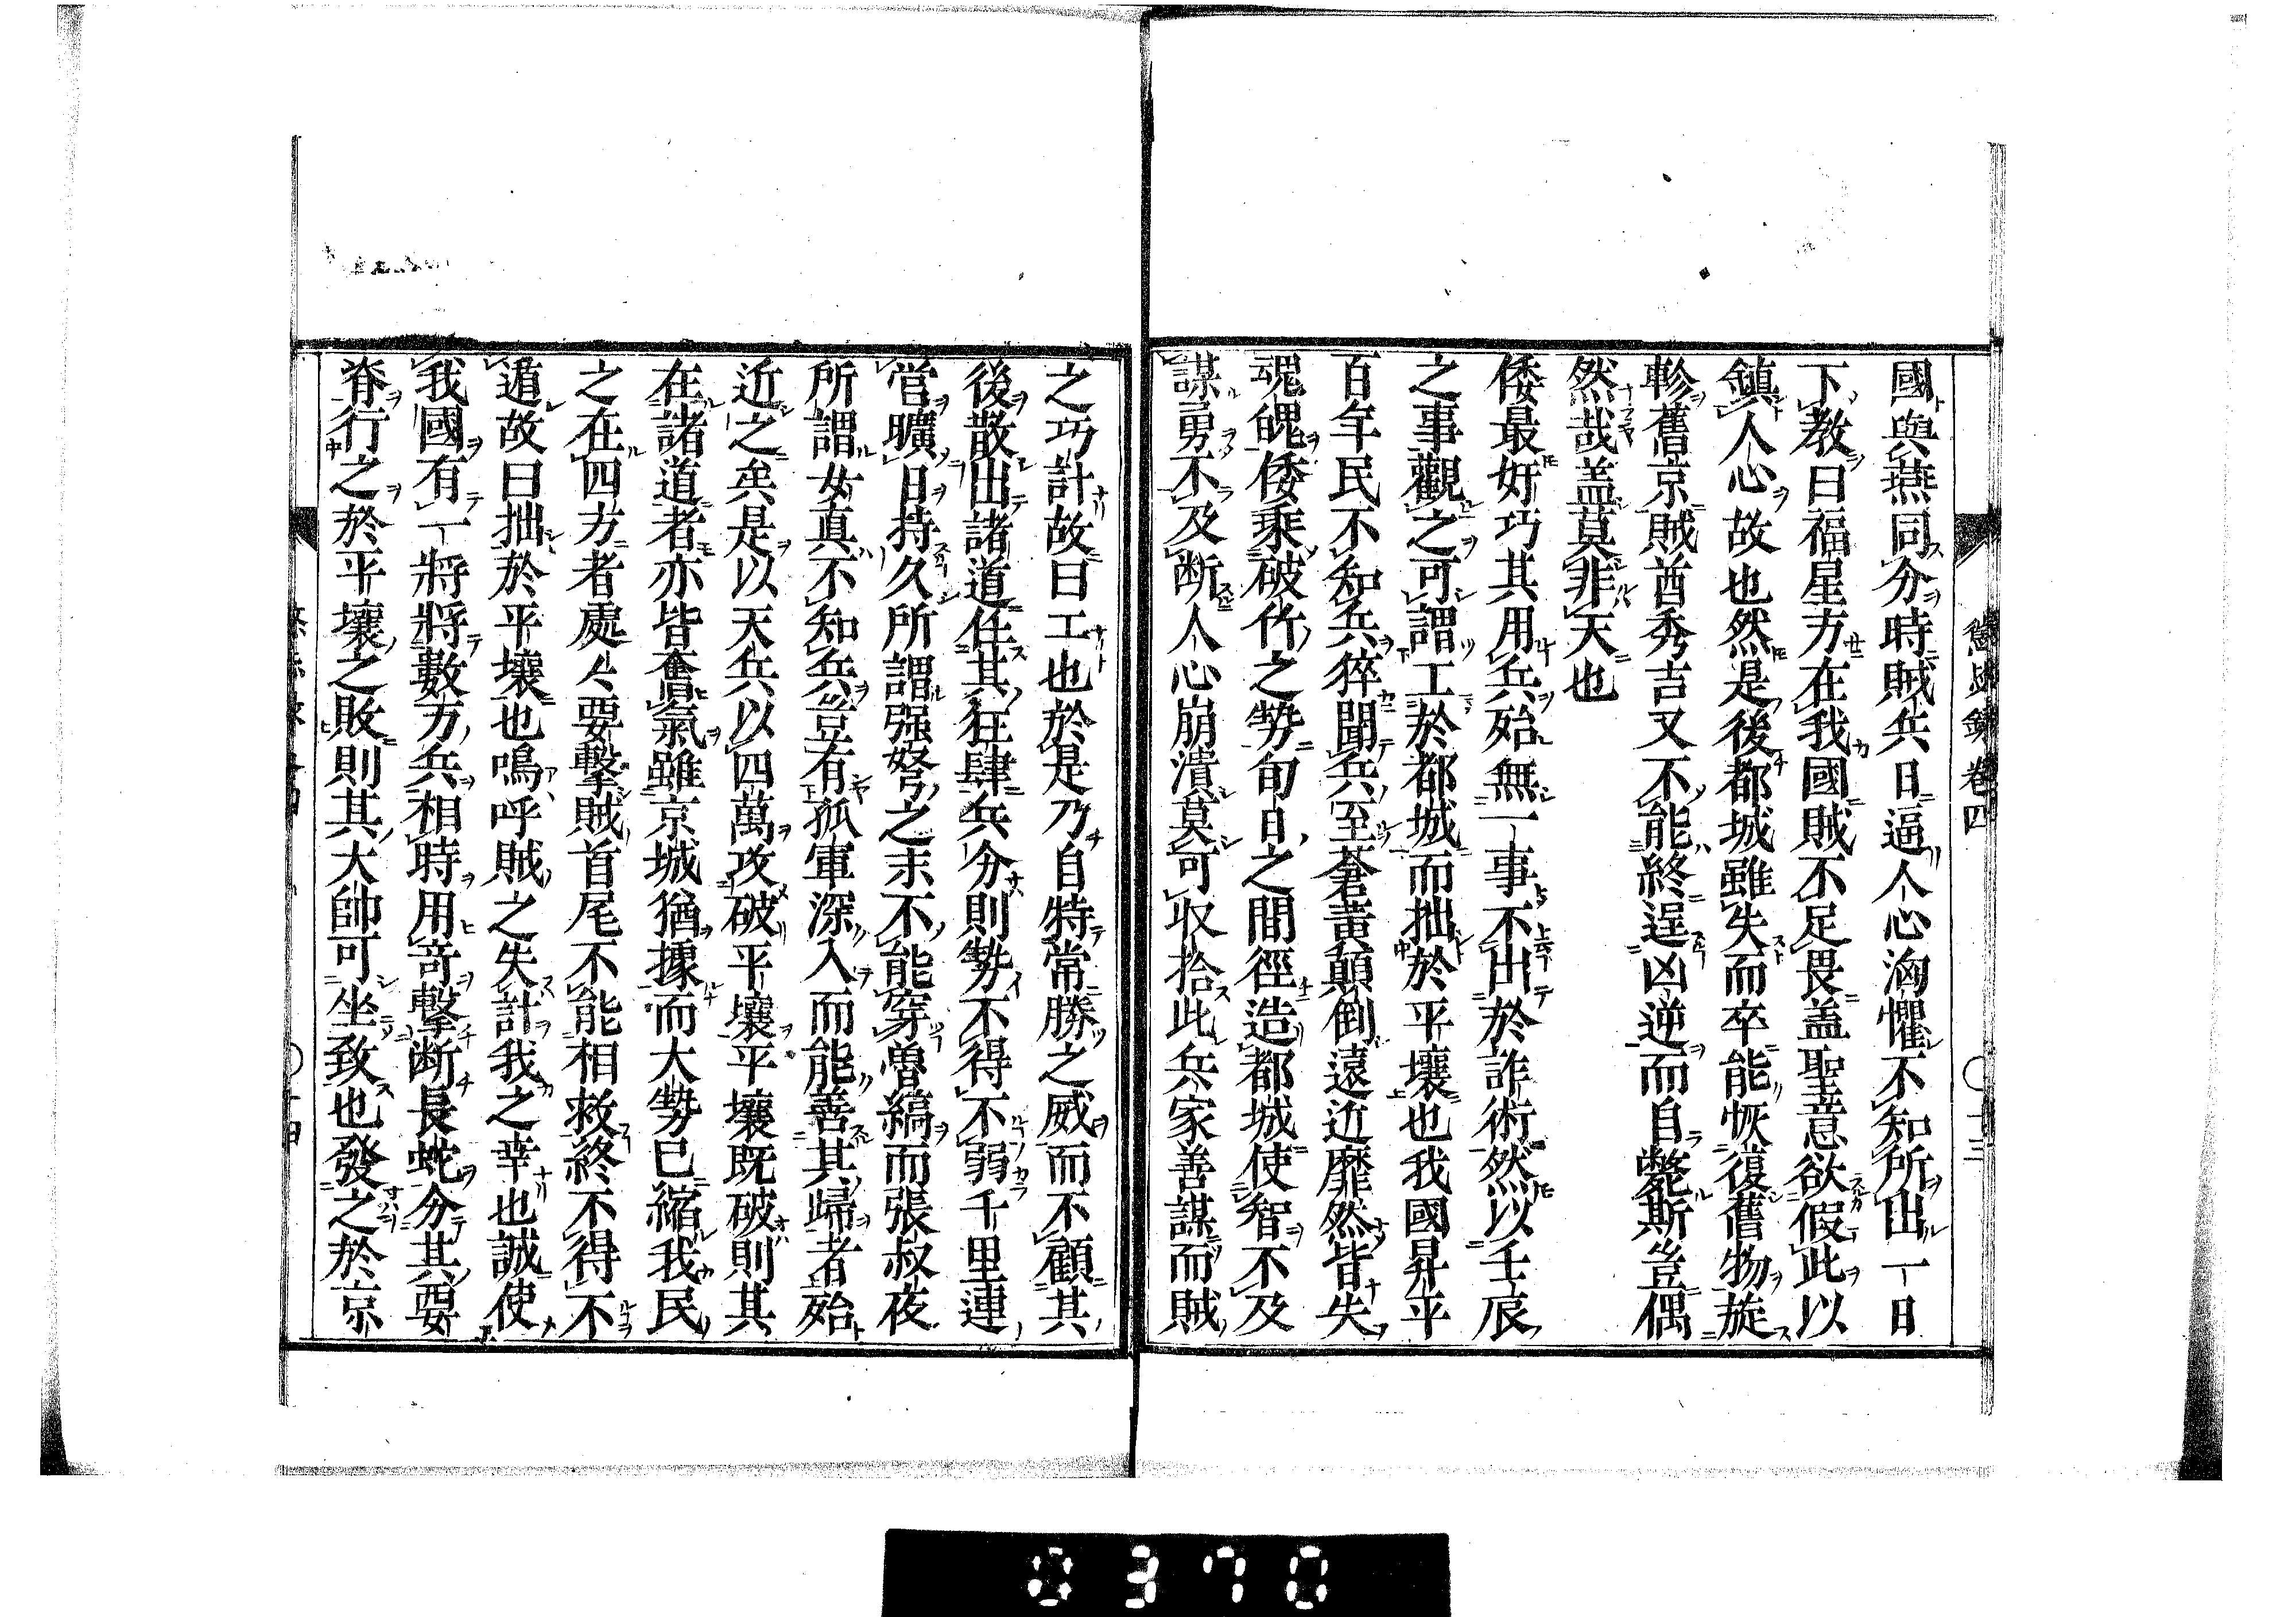 國與燕同分時賊兵日逼人心洶懼不知所出一日
下教曰福星方在我國賊不足畏盖聖意欲假此以
鎮人心故也然是後都城雖失而卒能恢復舊物旋
軫舊京賊酋秀吉又不能終逞凶逆而自斃斯豈偶
然哉盖莫非天也
倭最奸巧其用兵殆無一事不出於詐術然以壬辰
之事觀之可謂工於都城而拙於平壤也我國昇平
百年民不知兵猝聞兵至蒼黃顛倒遠近靡然皆失
魂魄倭乘破竹之勢旬日之間徑造都城使智不及
謀勇不及断人心崩潰莫可収拾此兵家善謀而賊
之巧計故曰工也於是乃自恃常勝之威而不顧其
後散出諸道任其狂肆兵分則勢不得不弱千里連
営曠日持久所謂强弩之末不能穿魯縞而張叔夜
所謂女真不知兵豈有孤軍深入而能善其歸者殆
近之矣是以天兵以四萬攻破平壤平壤既破則其
在諸道者亦皆奪氣雖京城猶據而大勢已縮我民
之在四方者處々要擊賊首尾不能相救終不得不
遁故曰拙於平壤也嗚呼賊之失計我之幸也誠使
我國有一將將數万兵相時用竒擊断長蛇分其要
脊行之於平壤之敗則其大帥可坐致也發之於京
懲毖錄卷四
十三
0370